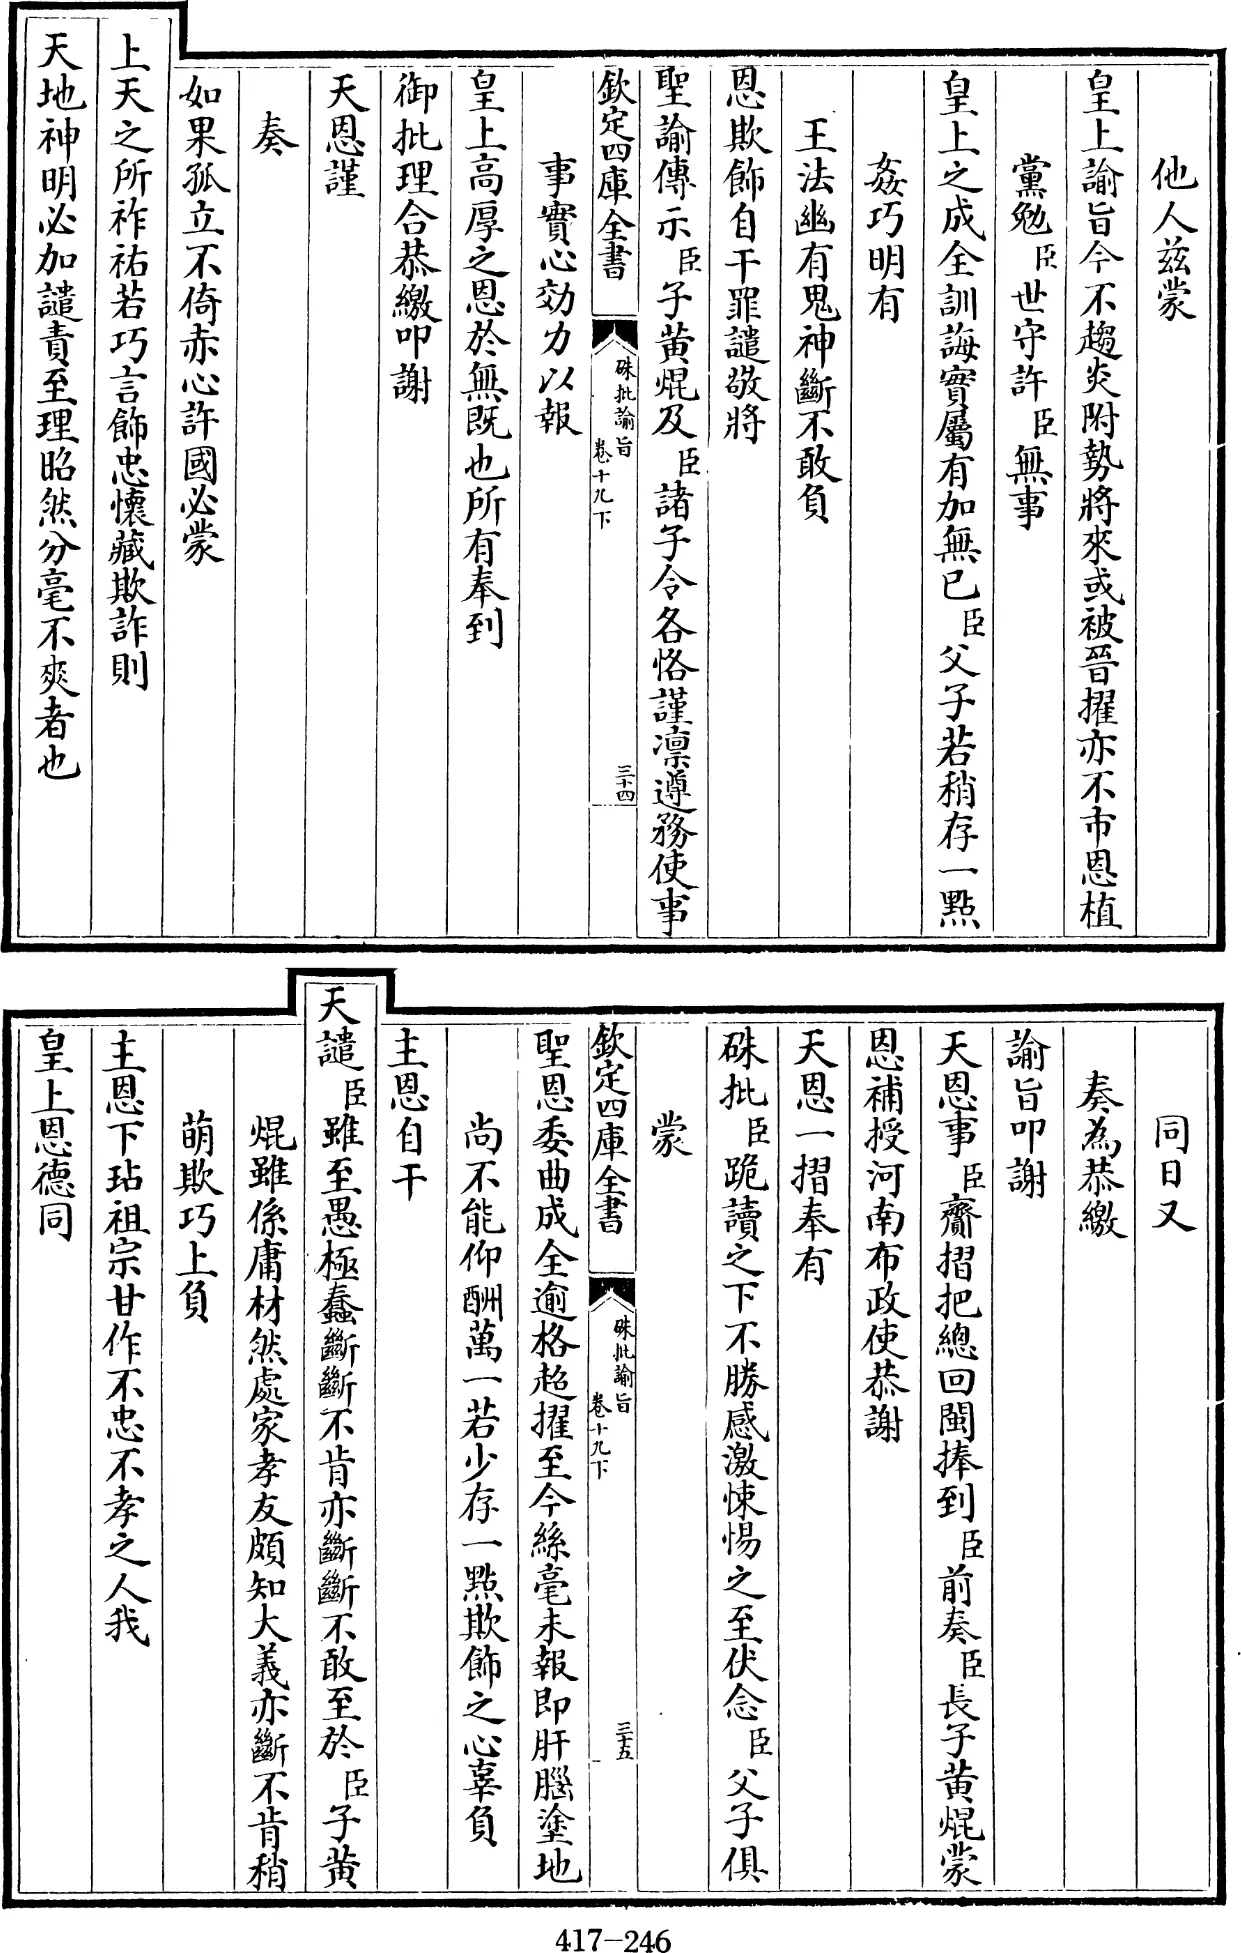 他人茲蒙
皇上諭旨今不趨炎附勢將來或被晉擢亦不市恩植
黨勉臣世守許臣無事
皇上之成全訓誨實屬有加無已臣父子若稍存一點
姦巧明有
王法幽有鬼神斷不敢負
恩欺飾自干罪譴敬將
聖諭傳示臣子黃焜及臣諸子令各恪謹凜遵務使事
欽定四庫全書
硃批諭旨
卷十九下
三十四
事實心効力以報
皇上高厚之恩於無既也所有奉到
御批理合恭繳叩謝
天恩謹
奏
如果孤立不倚赤心許國必蒙
上天之所祚祐若巧言飾忠懷藏欺詐則
天地神明必加譴責至理昭然分毫不爽者也
同日又
奏為恭繳
諭旨叩謝
天恩事臣齎摺把總回閩捧到臣前奏臣長子黃焜蒙
恩補授河南布政使恭謝
天恩一摺奉有
硃批臣跪讀之下不勝感激悚惕之至伏念臣父子俱
蒙
欽定四庫全書
硃批諭旨
卷十九下
三十五
聖恩委曲成全逾格超擢至今絲毫未報即肝腦塗地
尚不能仰酬萬一若少存一點欺飾之心辜負
主恩自干
天譴臣雖至愚極蠢斷斷不肯亦斷斷不敢至於臣子黃
焜雖係庸材然處家孝友頗知大義亦斷不肯稍
萌欺巧上負
主恩下玷祖宗甘作不忠不孝之人我
皇上恩德同
417-246